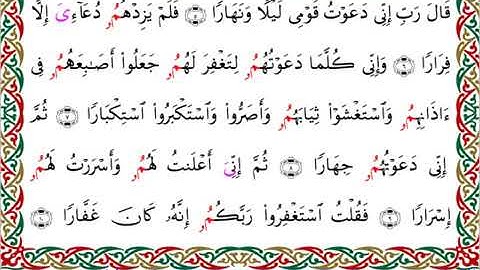 قَالَ رَبِّ إِنِّي دَعَوْتُ قَوْمِي لَيْلًا وَنَهَارًا ۝ فَلَمْ يَزِدْهُمُۥ دُعَآءِيَ إِلَّا
فِرَارًا ۝٦ وَإِنِّي كُلَّمَا دَعَوْتُهُمُۥ لِتَغْفِرَ لَهُمُۥ جَعَلُوٓا۟ أَصَٰبِعَهُمُۥ فِيٓ
ءَاذَانِهِمُۥ وَٱسْتَغْشَوْا۟ ثِيَابَهُمُۥ وَأَصَرُّوا۟ وَٱسْتَكْبَرُوا۟ ٱسْتِكْبَارًا ۝٧ ثُمَّ
إِنِّي دَعَوْتُهُمُۥ جِهَارًا ۝٨ ثُمَّ إِنِّيَ أَعْلَنتُ لَهُمُۥ وَأَسْرَرْتُ لَهُمُۥ
إِسْرَارًا ۝ فَقُلْتُ ٱسْتَغْفِرُوا۟ رَبَّكُمُۥ إِنَّهُۥ كَانَ غَفَّارًا ۝